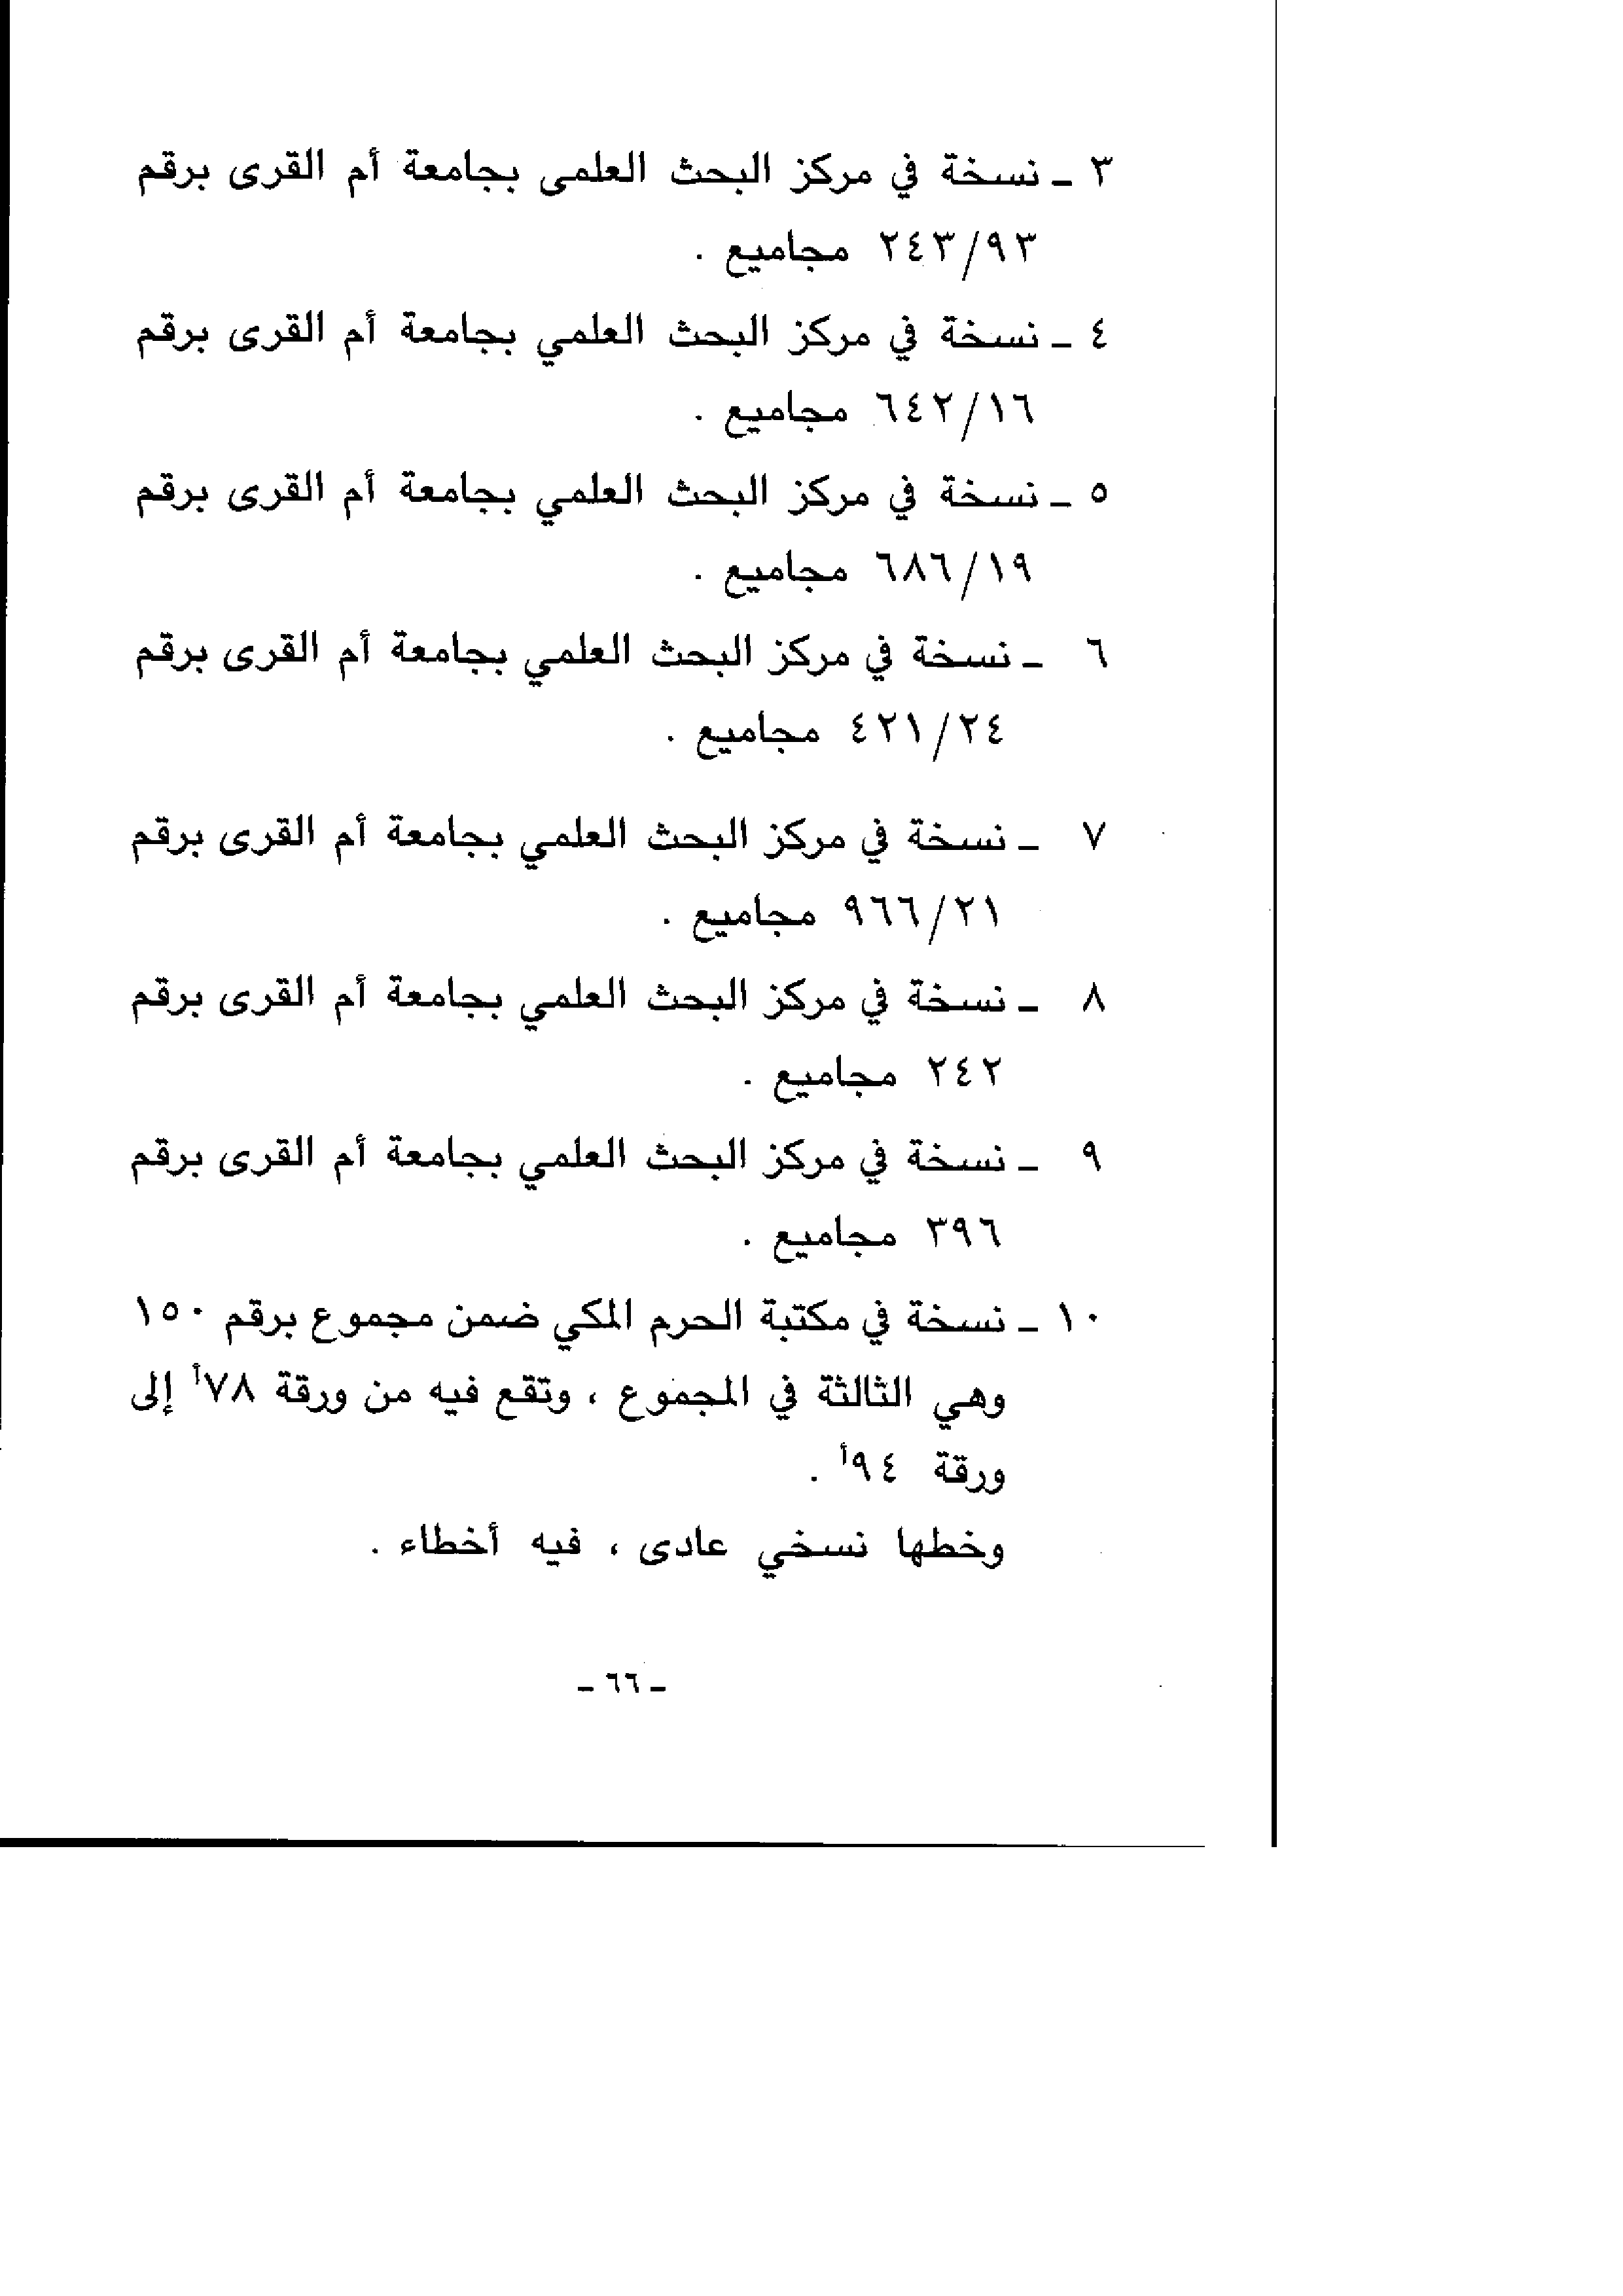 ٣ ـ نسخة في مركز البحث العلمى بجامعة أم القرى برقم
٢٤٣/٩٣ مجاميع .
٤ ـ نسخة في مركز البحث العلمي بجامعة أم القرى برقم
٦٤٢/١٦ مجاميع .
٥ ـ نسخة في مركز البحث العلمي بجامعة أم القرى برقم
٦٨٦/١٩ مجاميع .
٦ ـ نسخة في مركز البحث العلمي بجامعة أم القرى برقم
٤٢١/٢٤ مجاميع .
٧ ـ نسخة في مركز البحث العلمي بجامعة أم القرى برقم
٩٦٦/٢١ مجاميع .
٨ ـ نسخة في مركز البحث العلمي بجامعة أم القرى برقم
٢٤٢ مجاميع .
٩ ـ نسخة في مركز البحث العلمي بجامعة أم القرى برقم
٣٩٦ مجاميع .
١٠ ـ نسخة في مكتبة الحرم المكي ضمن مجموع برقم ١٥٠
وهي الثالثة في المجموع ، وتقع فيه من ورقة ٧٨أ إلى
ورقة ٩٤أ .
وخطها نسخي عادى ، فيه أخطاء .
ـ ٦٦ ـ